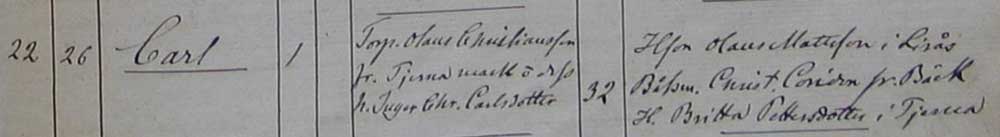 22 26 Carl 1 Torp. Olaus Christiansson
fr. Tjerna mark o dess
h. Inger Chr. Carlsdotter 32
Hson Olaus Mattsson i Lisås
Båtsm. Christ. fr. Bäck
H. Britta Pettersdotter i Tjerna